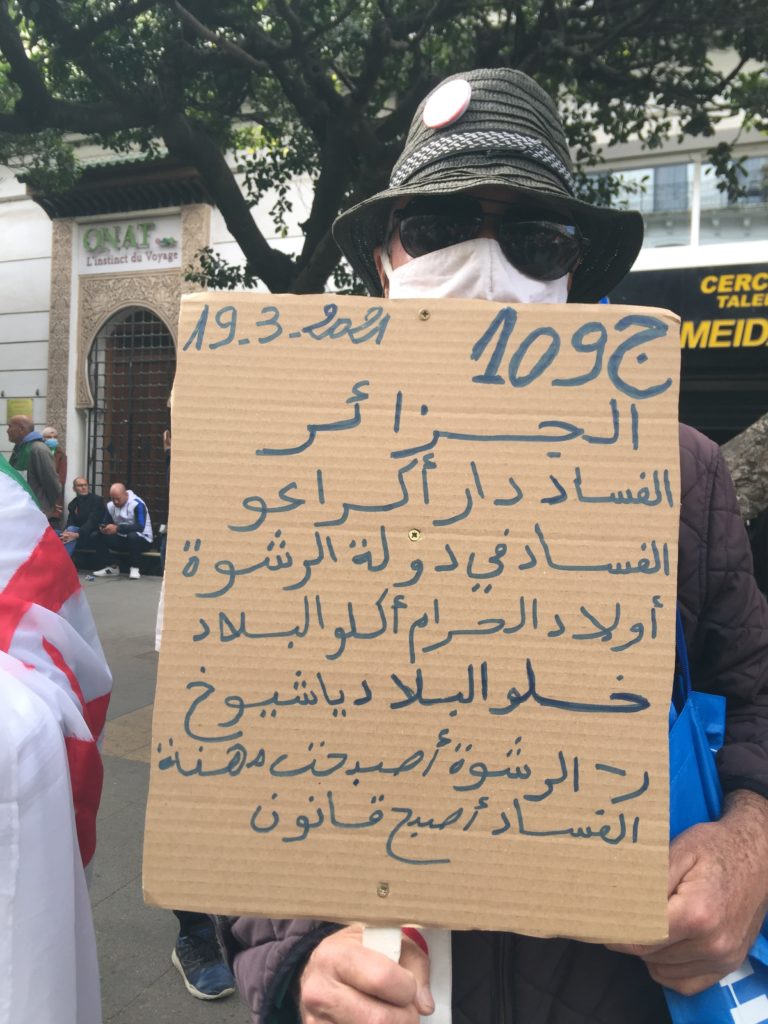 ONAT
L'instinct du Voyage
CERC
TALE
MEID
ج109 19_3_2021
الجزائر
الفساد دار أكراعو
الفساد في دولة الرشوة
أولاد الحرام أكلو البلاد
خلو البلاد ياشيوخ
ر - الرشوة أصبحت مهنة
الفساد أصبح قانون